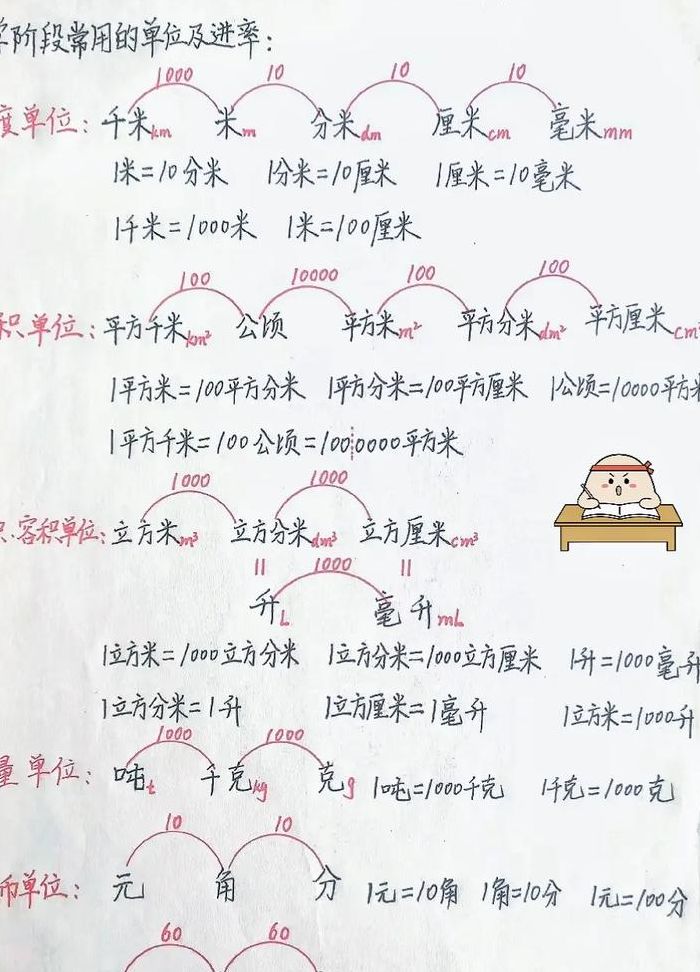 学阶段常用的单位及进率:
1000 10 10 10
度单位: 千米km 米m 分米dm 厘米cm 毫米mm
1米=10分米 1分米=10厘米 1厘米=10毫米
1千米=1000米 1米=100厘米
100 10000 100 100
积单位: 平方千米km² 公顷 平方米m² 平方分米dm² 平方厘米cm²
1平方米=100平方分米 1平方分米=100平方厘米 1公顷=10000平方米
1平方千米=100公顷=1000000平方米
1000 1000
积.容积单位: 立方米m³ 立方分米dm³ 立方厘米cm³
= 1000 =
升L 毫升mL
1立方米=1000立方分米 1立方分米=1000立方厘米 1升=1000毫升
1立方分米=1升 1立方厘米=1毫升 1立方米=1000升
1000 1000
量单位: 吨t 千克kg 克g 1吨=1000千克 1千克=1000克
10 10
币单位: 元 角 分 1元=10角 1角=10分 1元=100分
60 60